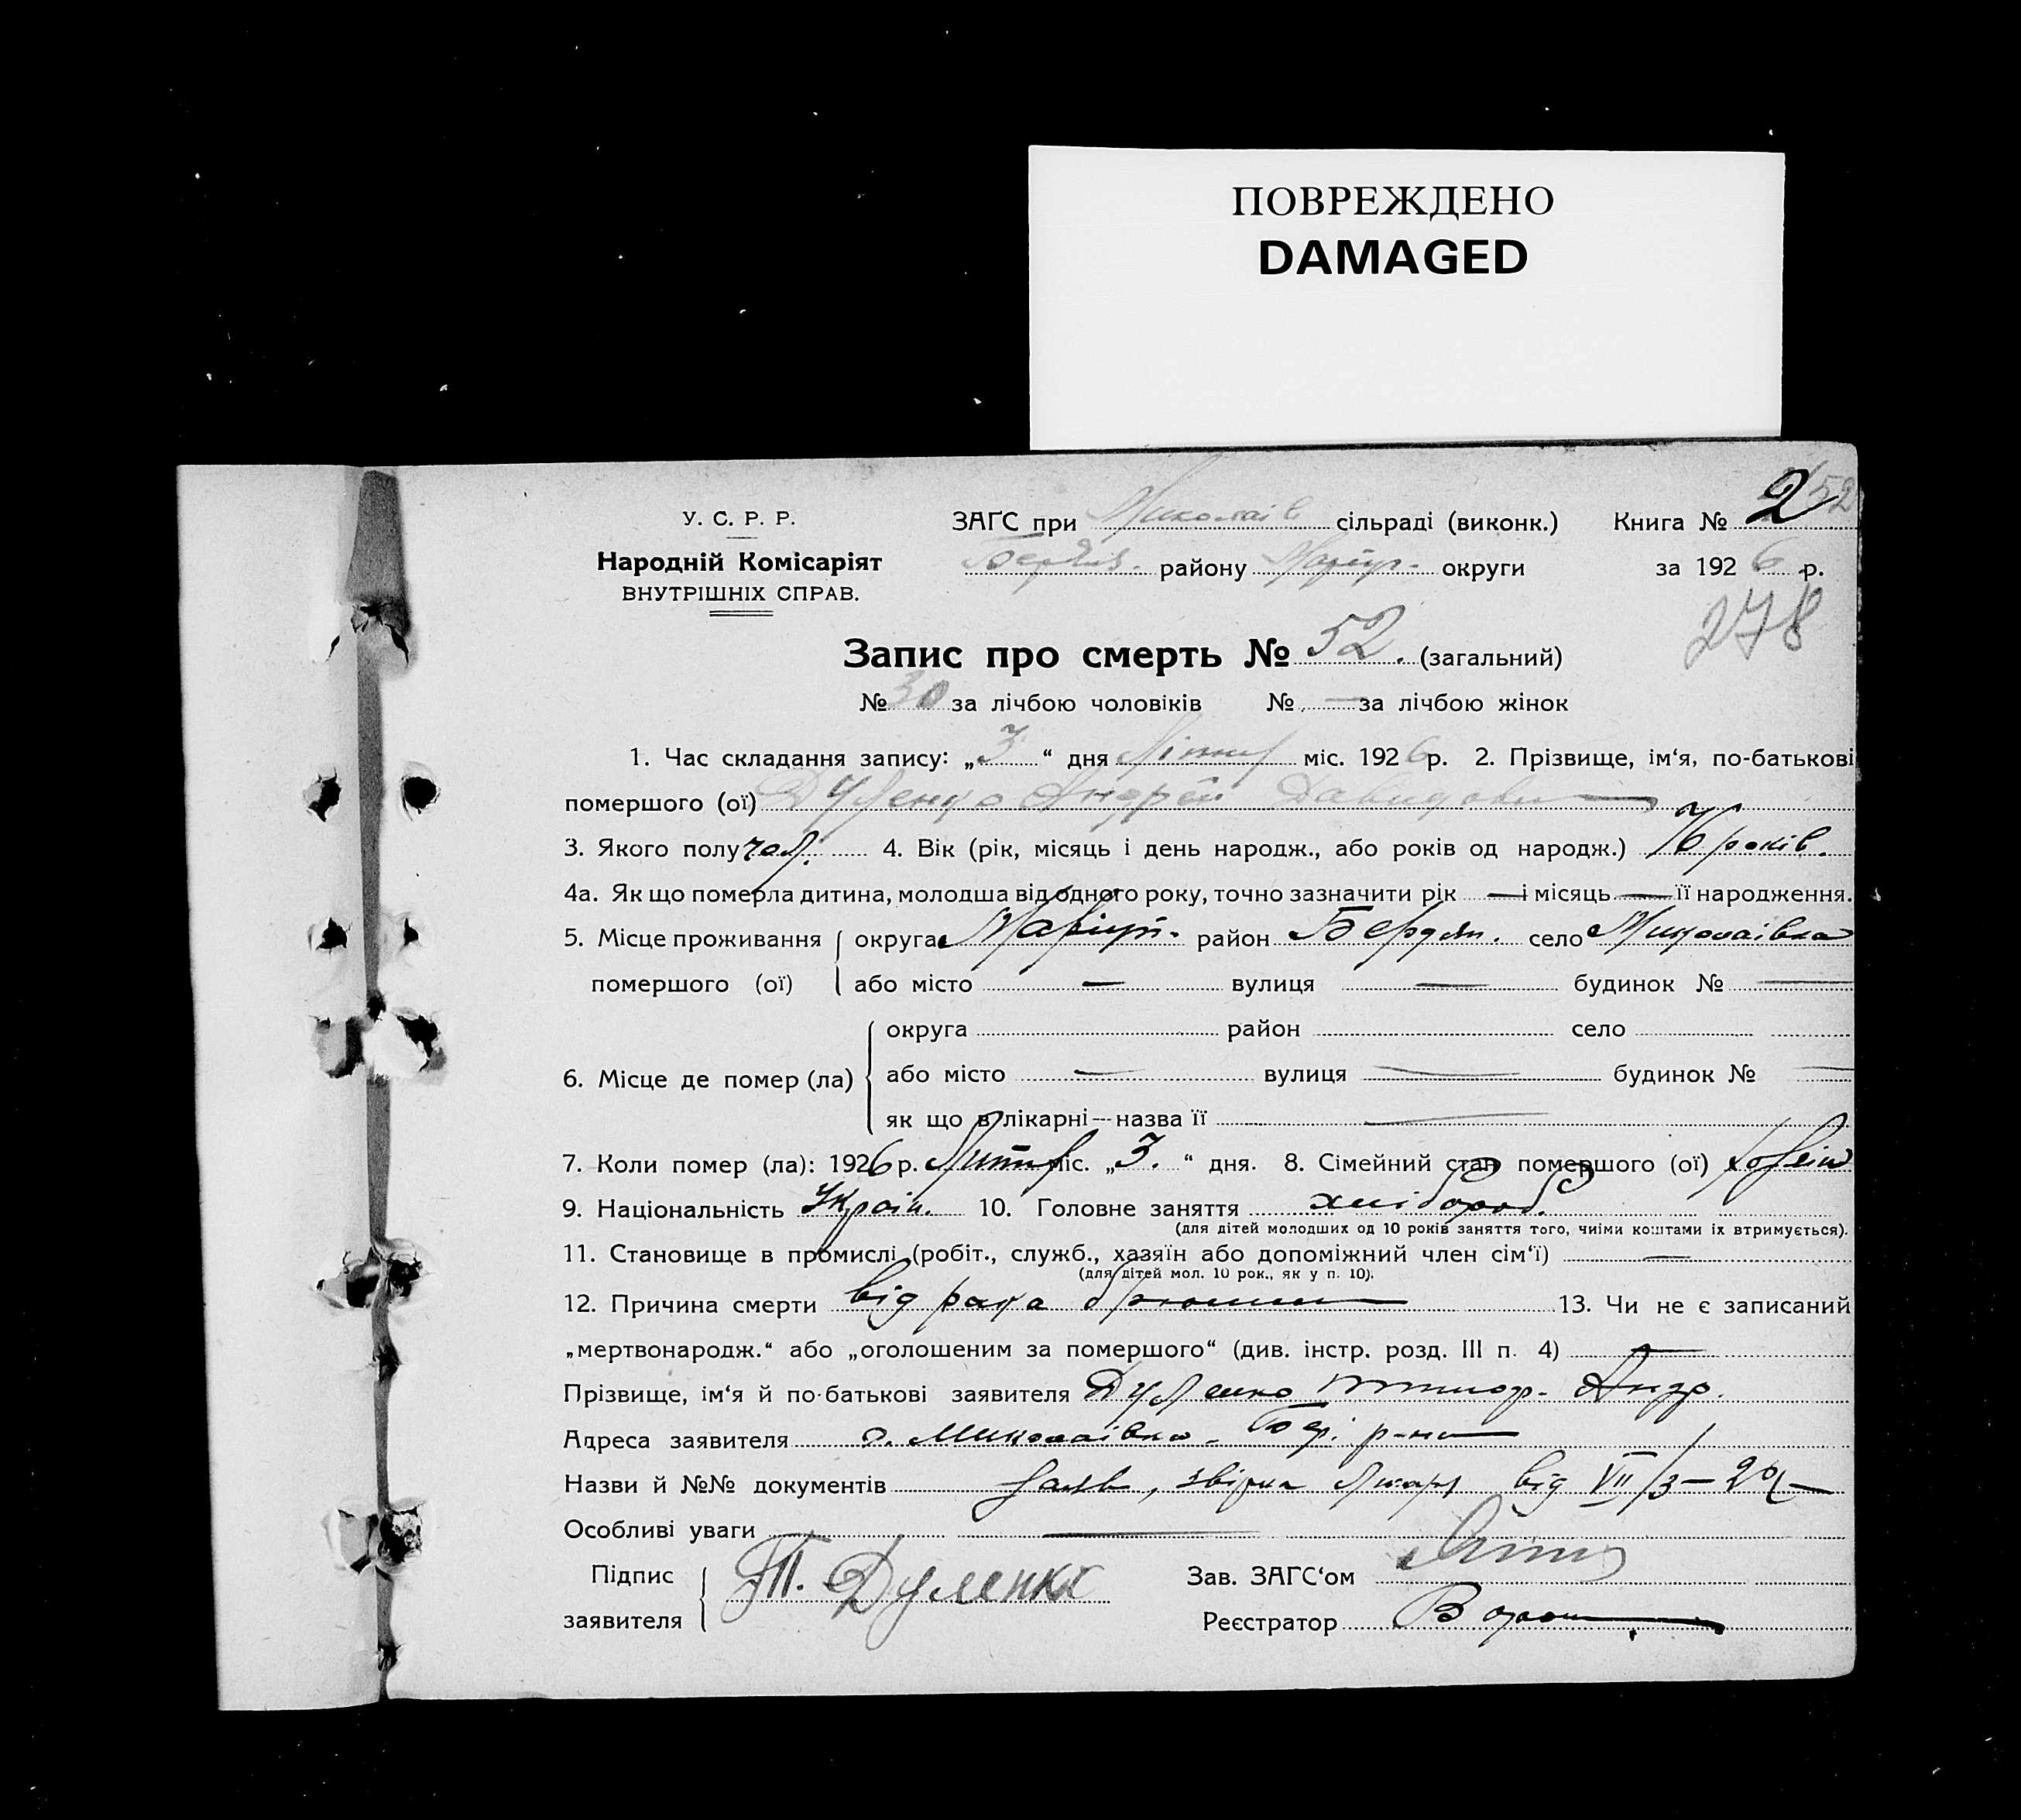 ПОВРЕЖДЕНО
DAMAGED
2 52
У. С. Р. Р. ЗАГС при Миколаїв сільраді (виконк.) Книга № 2
Народній Комісаріят Бердян. району Маріуп. округи за 1926 р.
ВНУТРІШНІХ СПРАВ.
278
Запис про смерть № 52. (загальний)
№ 30 за лічбою чоловіків № — за лічбою жінок
1. Час складання запису: „3“ дня міс. 1926 р. 2. Прізвище, ім‘я, по-батькові
помершого (ої) Дуленко Андрей Давидович
3. Якого полу чол. 4. Вік (рік, місяць і день народж., або років од народж.) 76 років.
4а. Як що померла дитина, молодша від одного року, точно зазначити рік — і місяць — її народження.
5. Місце проживання округа Маріуп. район Бердян. село Миколаівка
помершого (ої) або місто — вулиця — будинок № —
округа район село
6. Місце де помер (ла) або місто — вулиця — будинок № —
як що в лікарні—назва її —
7. Коли помер (ла): 1926 р. міс. „3.“ дня. 8. Сімейний стан помершого (ої)
9. Національність Украін. 10. Головне заняття хлібороб.
(для дітей молодших од 10 років заняття того, чиіми коштами іх втримується).
11. Становище в промислі (робіт., служб., хазяїн або допоміжний член сім‘ї) —
(для дітей мол. 10 рок., як у п. 10).
12. Причина смерти від рака 13. Чи не є записаний
„мертвонародж.“ або „оголошеним за помершого“ (див. інстр. розд. III п. 4) —
Прізвище, ім‘я й по-батькові заявителя Дуленко Андр.
Адреса заявителя с. Миколаівка Бер. р-на
Назви й №№ документів від VII/3—
Особливі уваги —
Підпис Т. Дуленко Зав. ЗАГС‘ом
заявителя Реєстратор